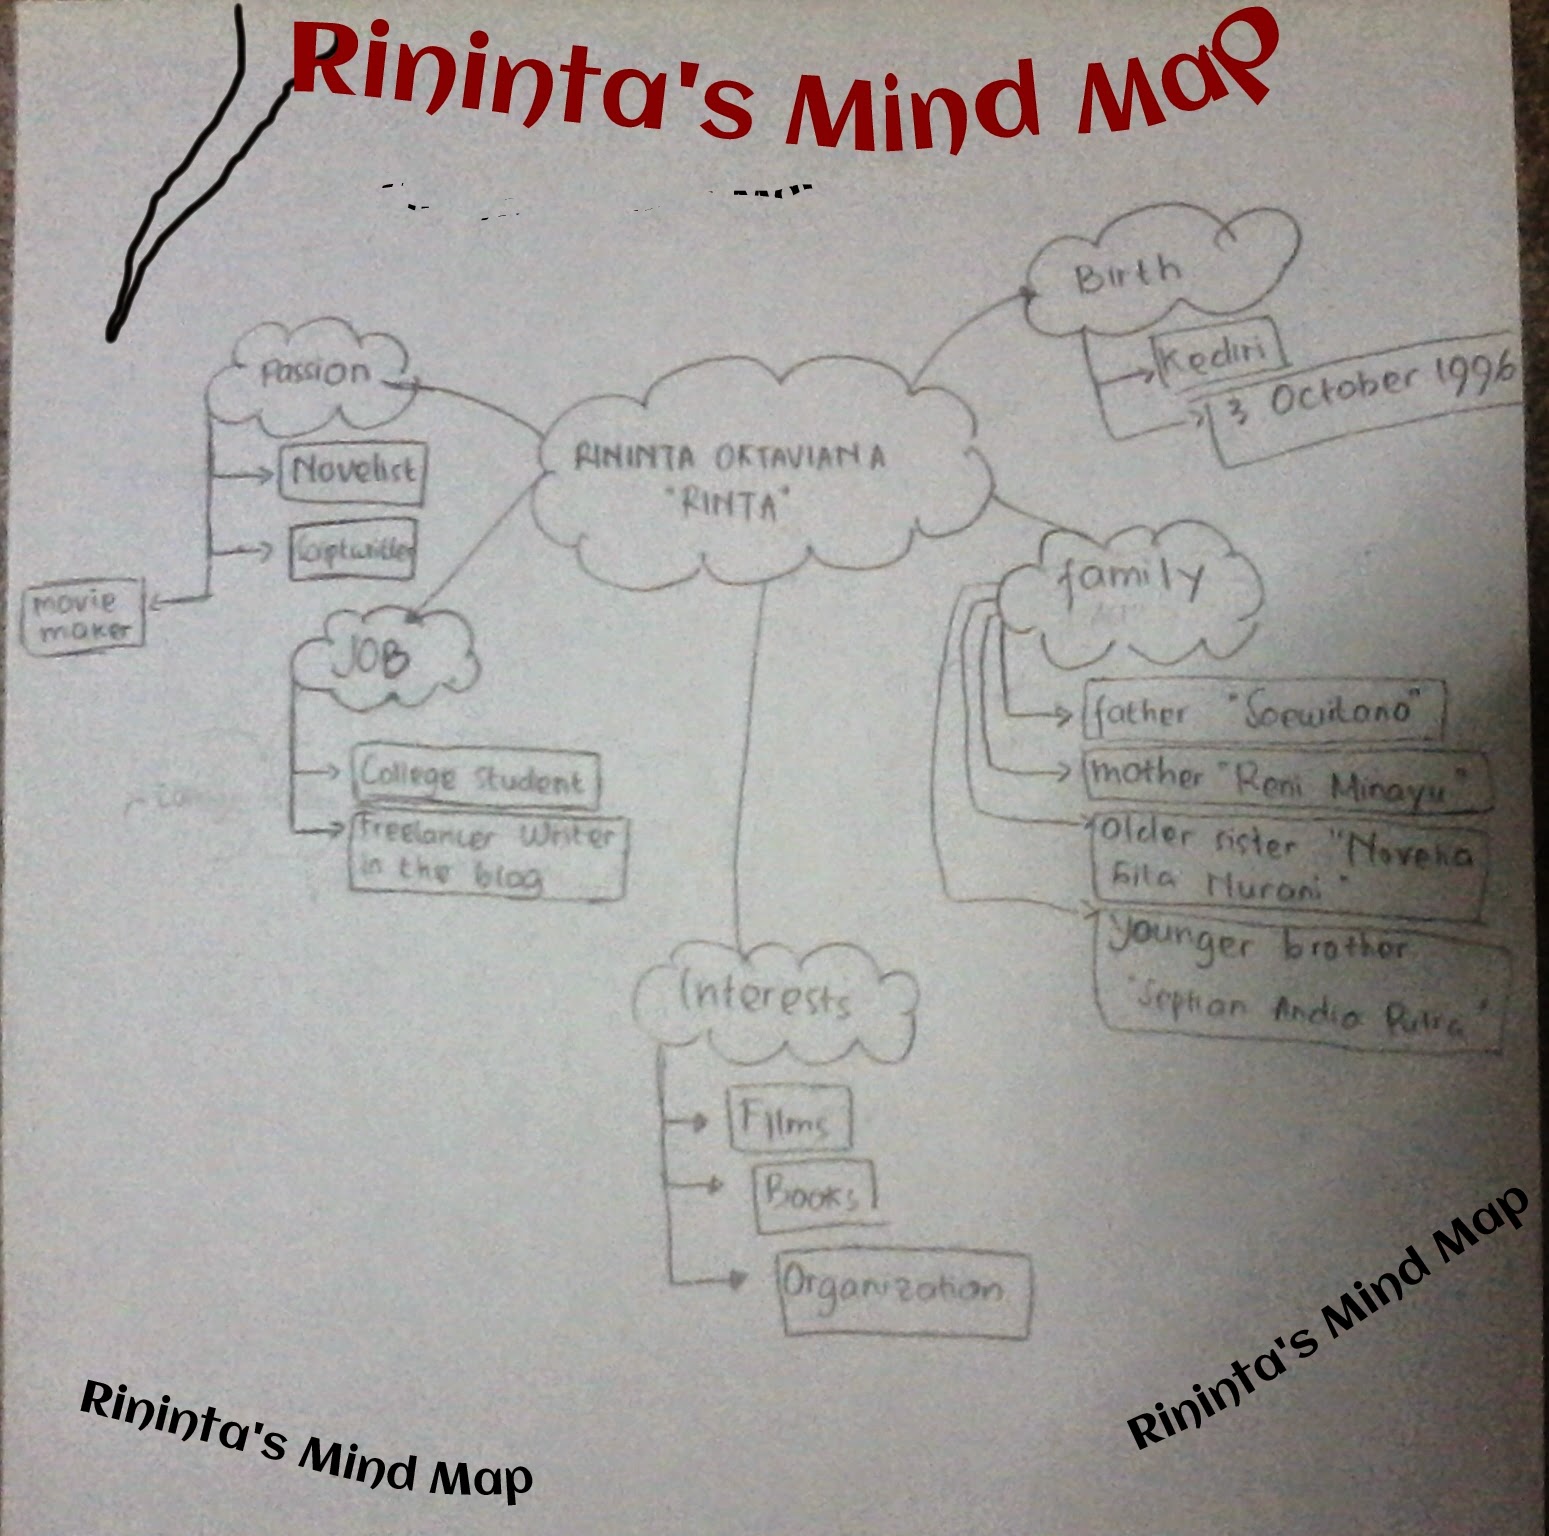 Rininta's Mind Map
Birth
Kediri
3 October 1996
Passion
Novelist
Scriptwriter
movie
maker
RININTA OKTAVIANA
"RINTA"
family
father "Soewitono"
mother "Reni Minayu"
older sister "Novena
Murani"
younger brother
"Sephian Andio Putra"
JOB
College student
Freelancer Writer
in the blog
Interests
Films
Books
Organization
Rininta's Mind Map
Rininta's Mind Map